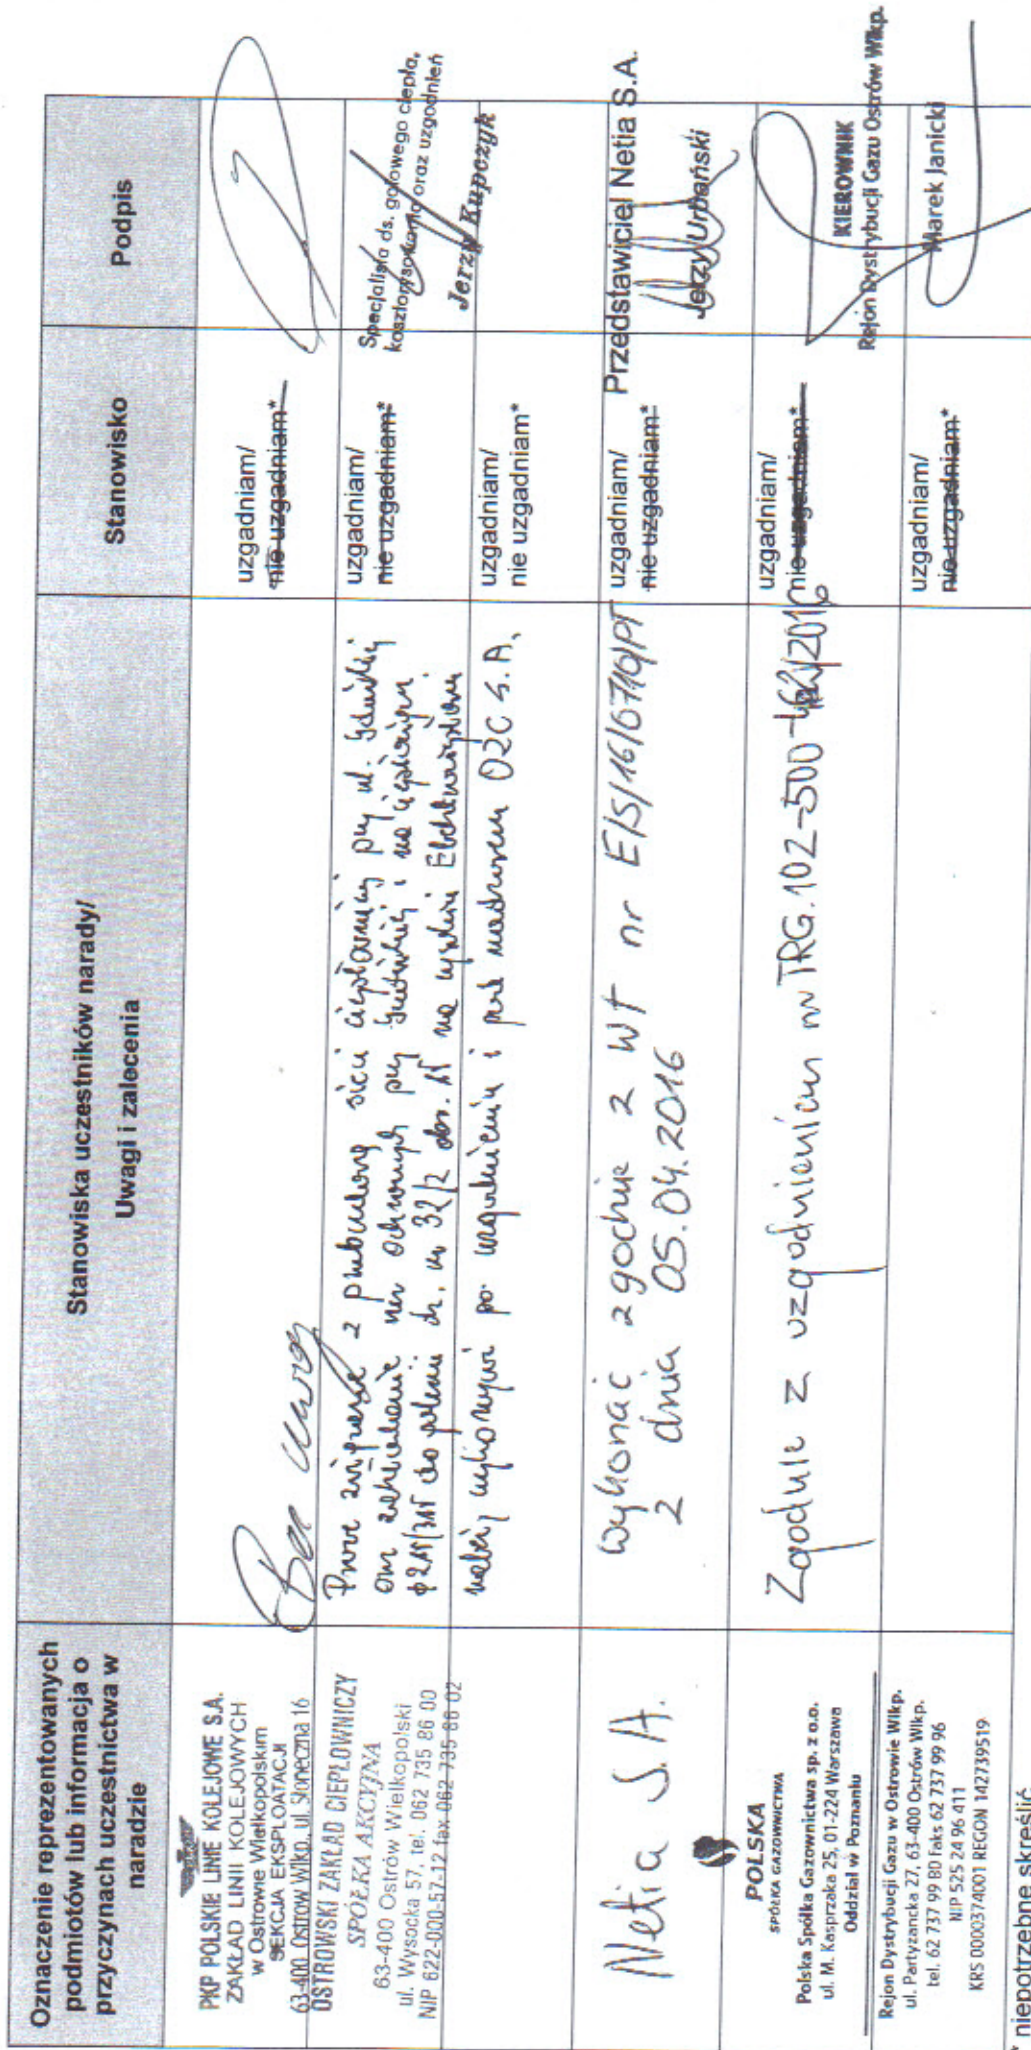 Oznaczenie reprezentowanych
podmiotów lub informacja o
przyczynach uczestnictwa w
naradzie
Stanowiska uczestników narady/
Uwagi i zalecenia
Stanowisko
Podpis
PKP POLSKIE LINIE KOLEJOWE S.A.
ZAKŁAD LINII KOLEJOWYCH
w Ostrowie Wielkopolskim
SEKCJA EKSPLOATACJI
63-400 Ostrów Wlkp., ul. Słoneczna 16
Bez uwag
uzgadniam/
nie uzgadniam*
OSTROWSKI ZAKŁAD CIEPŁOWNICZY
SPÓŁKA AKCYJNA
63-400 Ostrów Wielkopolski
ul. Wysocka 57, tel. 062 735 86 00
NIP 622-000-57-12 fax 062 735 86 02
Prace związane z przebudową sieci ciepłowniczej przy ul.
oraz rur ochronnych przy i na
do dz. nr 32/2 obr. na
należy po uzgodnieniu i pod nadzorem OZC S.A.
uzgadniam/
nie uzgadniam*
Specjalista ds. gotowego ciepła,
kosztorysowania oraz uzgodnień
Jerzy Kupczyk
uzgadniam/
nie uzgadniam*
Netia S.A.
Wykonać zgodnie z WT nr E/S/16/0710/PT
z dnia 05.04.2016
uzgadniam/
nie uzgadniam*
Przedstawiciel Netia S.A.
Jerzy Urbański
POLSKA
SPÓŁKA GAZOWNICTWA
Polska Spółka Gazownictwa sp. z o.o.
ul. M. Kasprzaka 25, 01-224 Warszawa
Oddział w Poznaniu
Zgodnie z uzgodnieniem nr TRG.102-500-162/2016
uzgadniam/
nie uzgadniam*
KIEROWNIK
Rejon Dystrybucji Gazu Ostrów Wlkp.
Marek Janicki
Rejon Dystrybucji Gazu w Ostrowie Wlkp.
ul. Partyzancka 27, 63-400 Ostrów Wlkp.
tel. 62 737 99 80 Faks 62 737 99 96
NIP 525 24 96 411
KRS 0000374001 REGON 142739519
uzgadniam/
nie uzgadniam*
* niepotrzebne skreślić